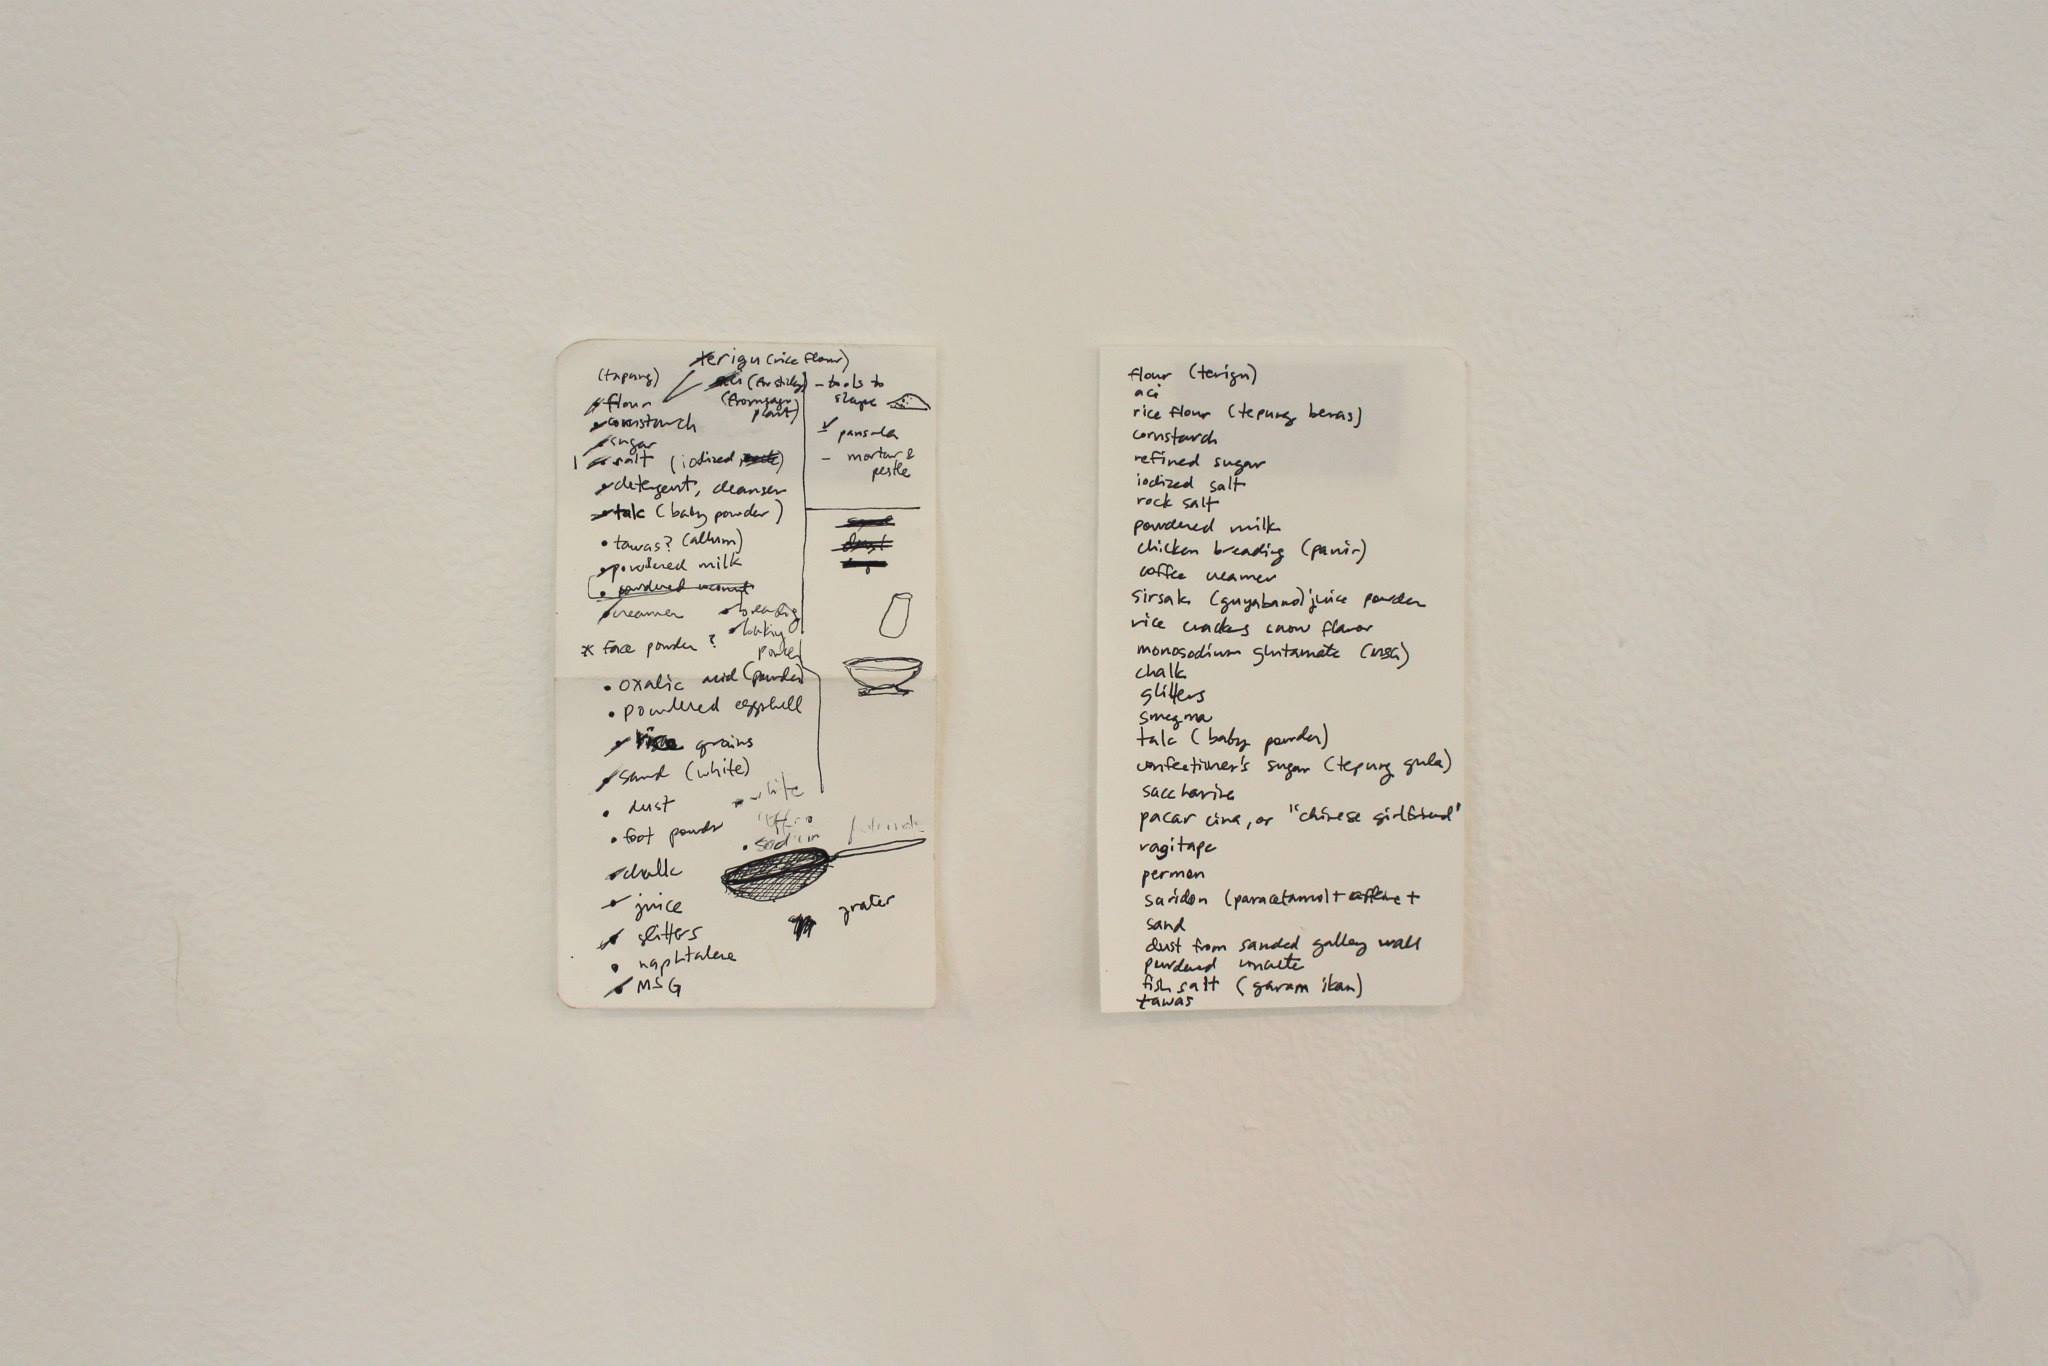 terigu (rice flour)
(tapung)
(for sticky)
(from sagu
plant)
flour
cornstarch
sugar
salt (iodized,
detergent, cleanser
talc (baby powder)
tawas? (allum)
powdered milk
powdered
creamer
breading
baking
powder
* face powder?
oxalic acid (powder)
powdered eggshell
rice grains
sand (white)
dust
foot powder
white
chalk
juice
glitters
naphtalene
MSG
- tools to
shape
- mortar &
pestle
dust
grater
flour (terigu)
aci
rice flour (tepung beras)
cornstarch
refined sugar
iodized salt
rock salt
powdered milk
chicken breading (panir)
coffee creamer
sirsak (guyabano) juice powder
rice crackers snow flavor
monosodium glutamate (MSG)
chalk
glitters
smegma
talc (baby powder)
confectioner's sugar (tepung gula)
saccharine
pacar cina, or "chinese girlfriend"
ragitape
permen
saridon (paracetamol + caffeine +
sand
dust from sanded gallery wall
powdered
fish salt (garam ikan)
tawas